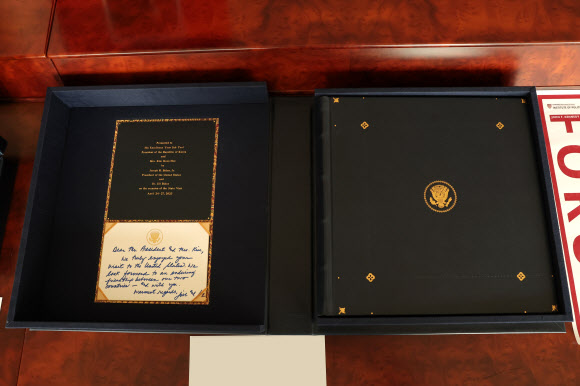 Presented to
His Excellency Yoon Suk Yeol
President of the Republic of Korea
and
Mrs. Kim Keon Hee
by
Joseph R. Biden, Jr.
President of the United States
and
Dr. Jill Biden
on the occasion of the State Visit
April 26-27, 2023
Dear Mr. President and Mrs. Kim,
We truly enjoyed your
visit to the United States. We
look forward to an enduring
friendship between our two
countries – and with you
Warmest regards,
Joe and
FORD